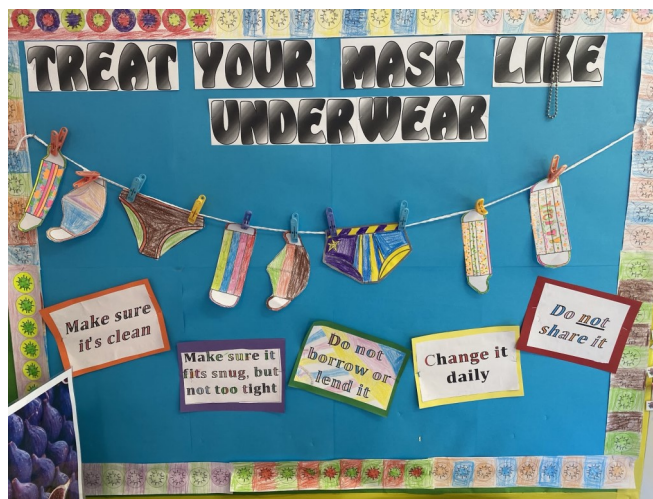 TREAT YOUR MASK LIKE
UNDERWEAR
Make sure
it's clean
Make sure it
fits snug, but
not too tight
Do not
borrow or
lend it
Change it
daily
Do not
share it